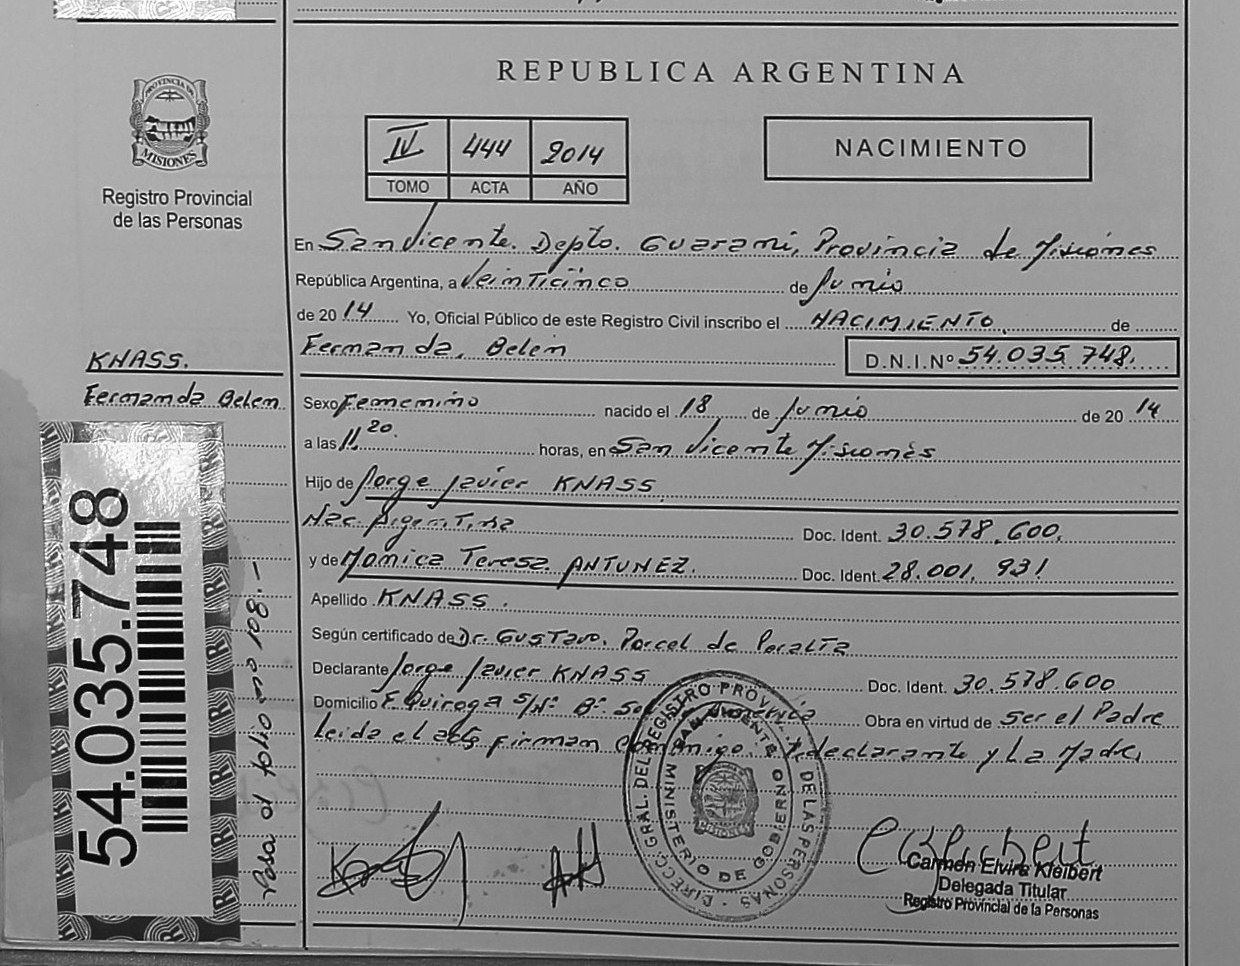 REPUBLICA ARGENTINA
PROVINCIA DE
MISIONES
Registro Provincial
de las Personas
IV 444 2014
TOMO ACTA AÑO
NACIMIENTO
En San Vicente. Depto. Guarani, Provincia de Misiones
República Argentina, a Veinticinco de Junio
de 20 14 Yo, Oficial Público de este Registro Civil inscribo el NACIMIENTO de
Fernanda, Belen D.N.I.Nº 54.035.748.
KNASS.
Fernanda Belen
Sexo Femenino nacido el 18 de Junio de 20 14
a las 11.20. horas, en San Vicente Misiones
Hijo de Jorge Javier KNASS
Nac. Argentina Doc. Ident. 30.578.600.
y de Monica Teresa ANTUNEZ. Doc. Ident. 28.001.931
Apellido KNASS.
Según certificado de Dr. Gustavo. Porcel de Peralta
Declarante Jorge Javier KNASS Doc. Ident. 30.578.600
Domicilio F. Quiroga S/Nº Bº Obra en virtud de Ser el Padre
Leida el acta firman conmigo. declarante y La Madre,
54.035.748
Pasa al folio nº 108.-
DIRECC. GRAL. DEL REGISTRO PROVINCIAL DE LAS PERSONAS
MINISTERIO DE GOBIERNO
SAN VICENTE
MISIONES
Carmen Elvira Kleibert
Delegada Titular
Registro Provincial de la Personas